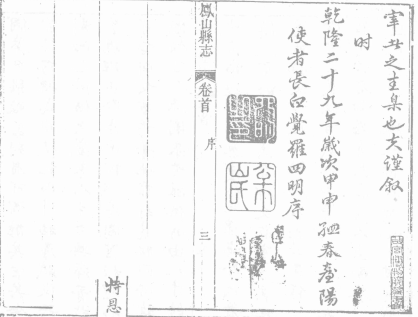 之圭臬也夫謹叙
时
乾隆二十九年歲次甲申春臺陽
使者長白覺羅四明序
鳳山縣志
卷首
序
三
特恩